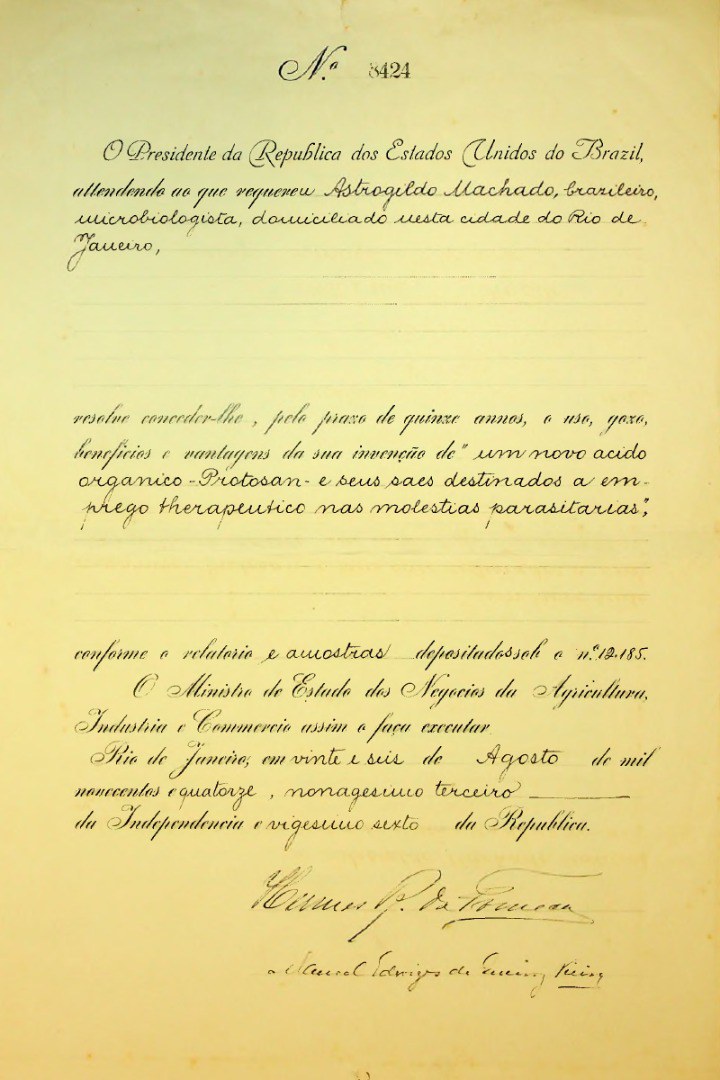 N.º 8424
O Presidente da Republica dos Estados Unidos do Brazil,
attendendo ao que requereu Astrogildo Machado, brazileiro,
microbiologista, domiciliado nesta cidade do Rio de
Janeiro,
resolve conceder-lhe, pelo prazo de quinze annos, o uso, gozo,
beneficios e vantagens da sua invenção de "um novo acido
organico - Protosan - e seus saes destinados a em-
prego therapeutico nas molestias parasitarias",
conforme o relatorio e amostras depositados sob o n.º 12.185.
O Ministro de Estado dos Negocios da Agricultura,
Industria e Commercio assim o faça executar.
Rio de Janeiro, em vinte e seis de Agosto de mil
novecentos e quatorze, nonagesimo terceiro
da Independencia e vigesimo sexto da Republica.
Hermes R. da Fonseca
Manoel Edwiges de Queiroz Vieira